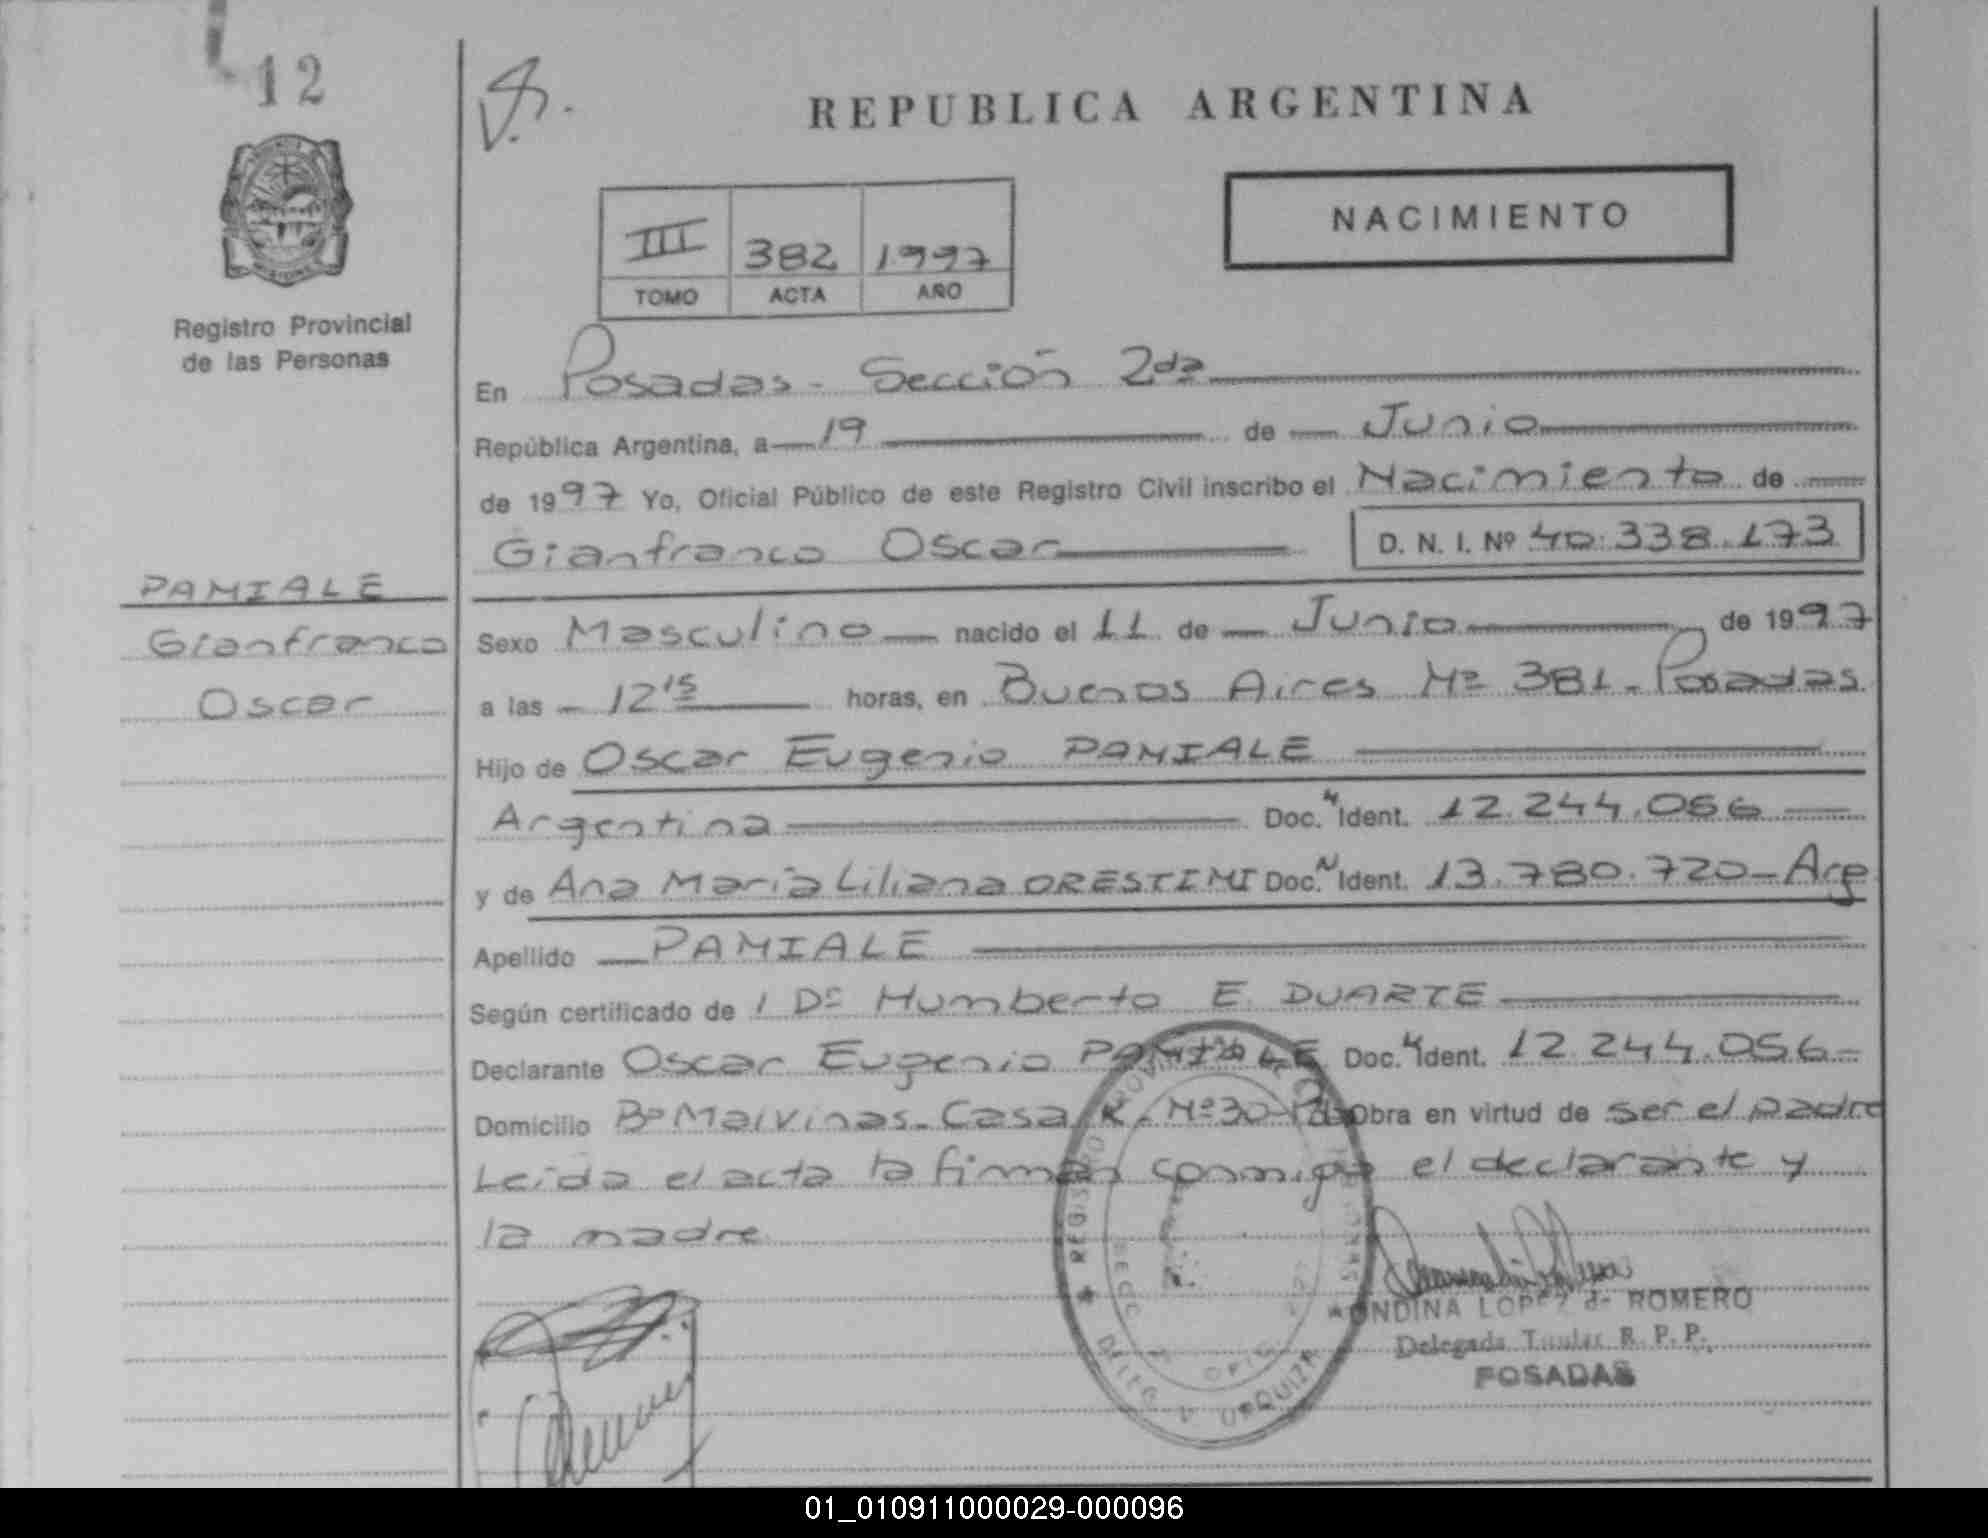 12
REPUBLICA ARGENTINA
NACIMIENTO
III 382 1997
TOMO ACTA AÑO
Registro Provincial
de las Personas
En Posadas - Sección 2da
República Argentina, a 19 de Junio
de 1997 Yo, Oficial Público de este Registro Civil inscribo el Nacimiento de
Gianfranco Oscar D. N. I. Nº 40.338.173
PAMIALE
Gianfranco
Oscar
Sexo Masculino nacido el 11 de Junio de 1997
a las 12 15 horas, en Buenos Aires Nº 381 - Posadas
Hijo de Oscar Eugenio PAMIALE
Argentina Doc. N Ident. 12.244.056
y de Ana María Liliana ORESTIMI Doc. N Ident. 13.780.720 - Arg
Apellido PAMIALE
Según certificado de / Dr Humberto E. DUARTE
Declarante Oscar Eugenio PAMIALE Doc. N Ident. 12.244.056-
Domicilio Bº Malvinas - Casa K - Nº 30 - Obra en virtud de ser el padre
Leida el acta la firman conmigo el declarante y
la madre
ONDINA LOPEZ de ROMERO
Delegada Titular R. P. P.
POSADAS
01_010911000029-000096